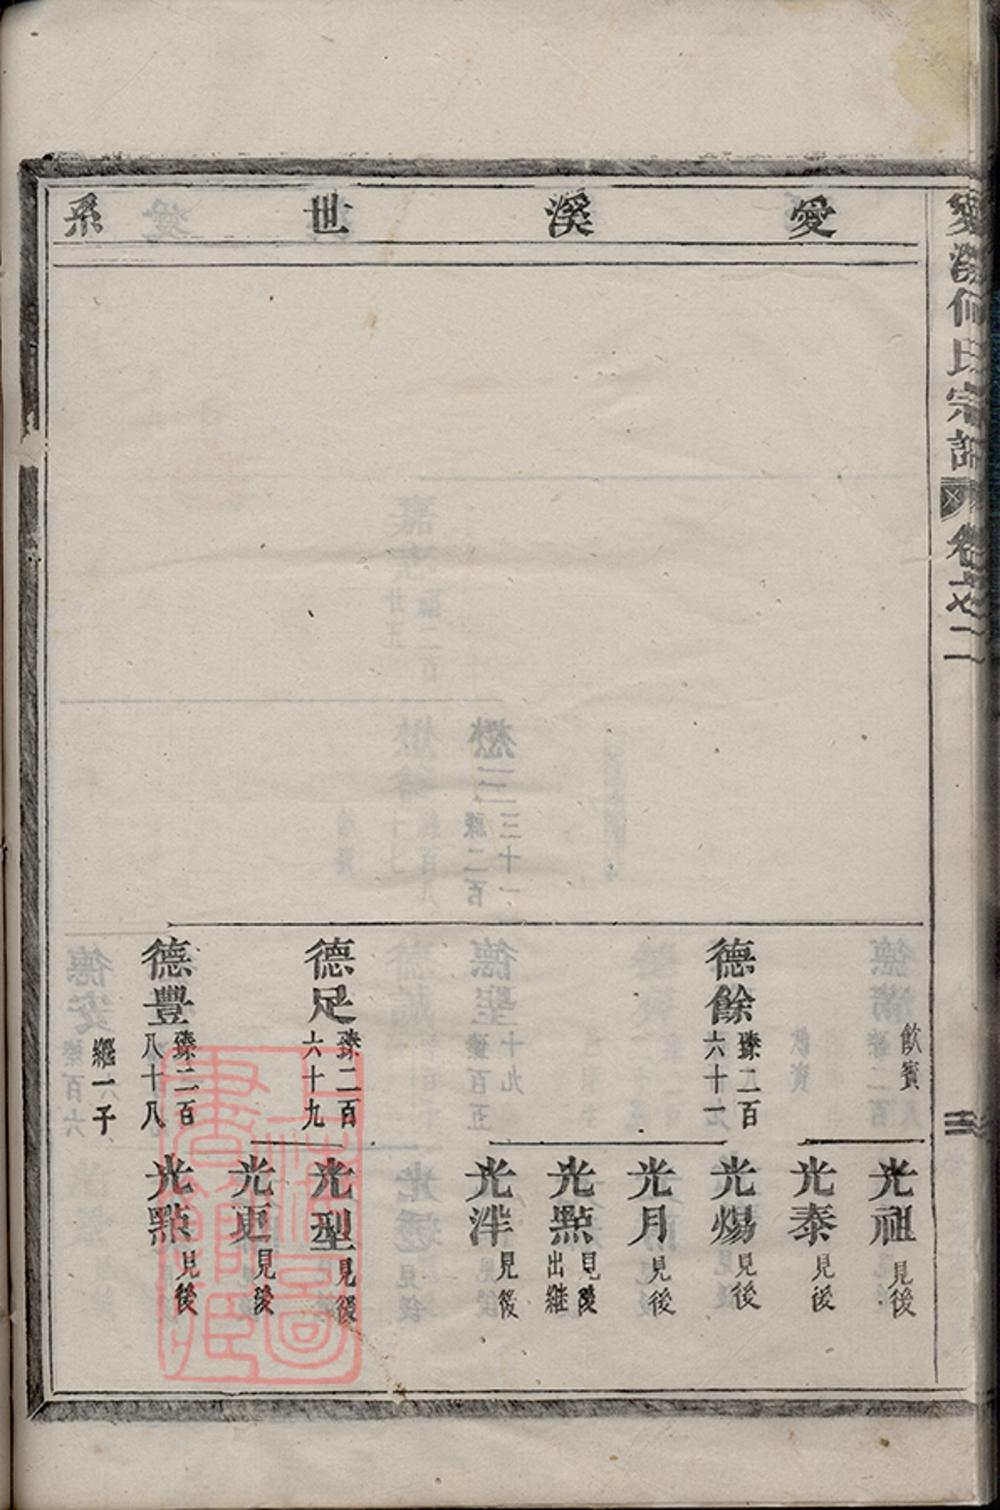 愛溪何氏宗譜 卷之二
愛溪世系
飲賓
德餘 臻二百六十一
德足 臻二百六十九
德豐 臻二百八十八
繼一子
光祖 見後
光泰 見後
光煬 見後
光月 見後
光點 見後出繼
光泮 見後
光型 見後
光更 見後
光點 見後